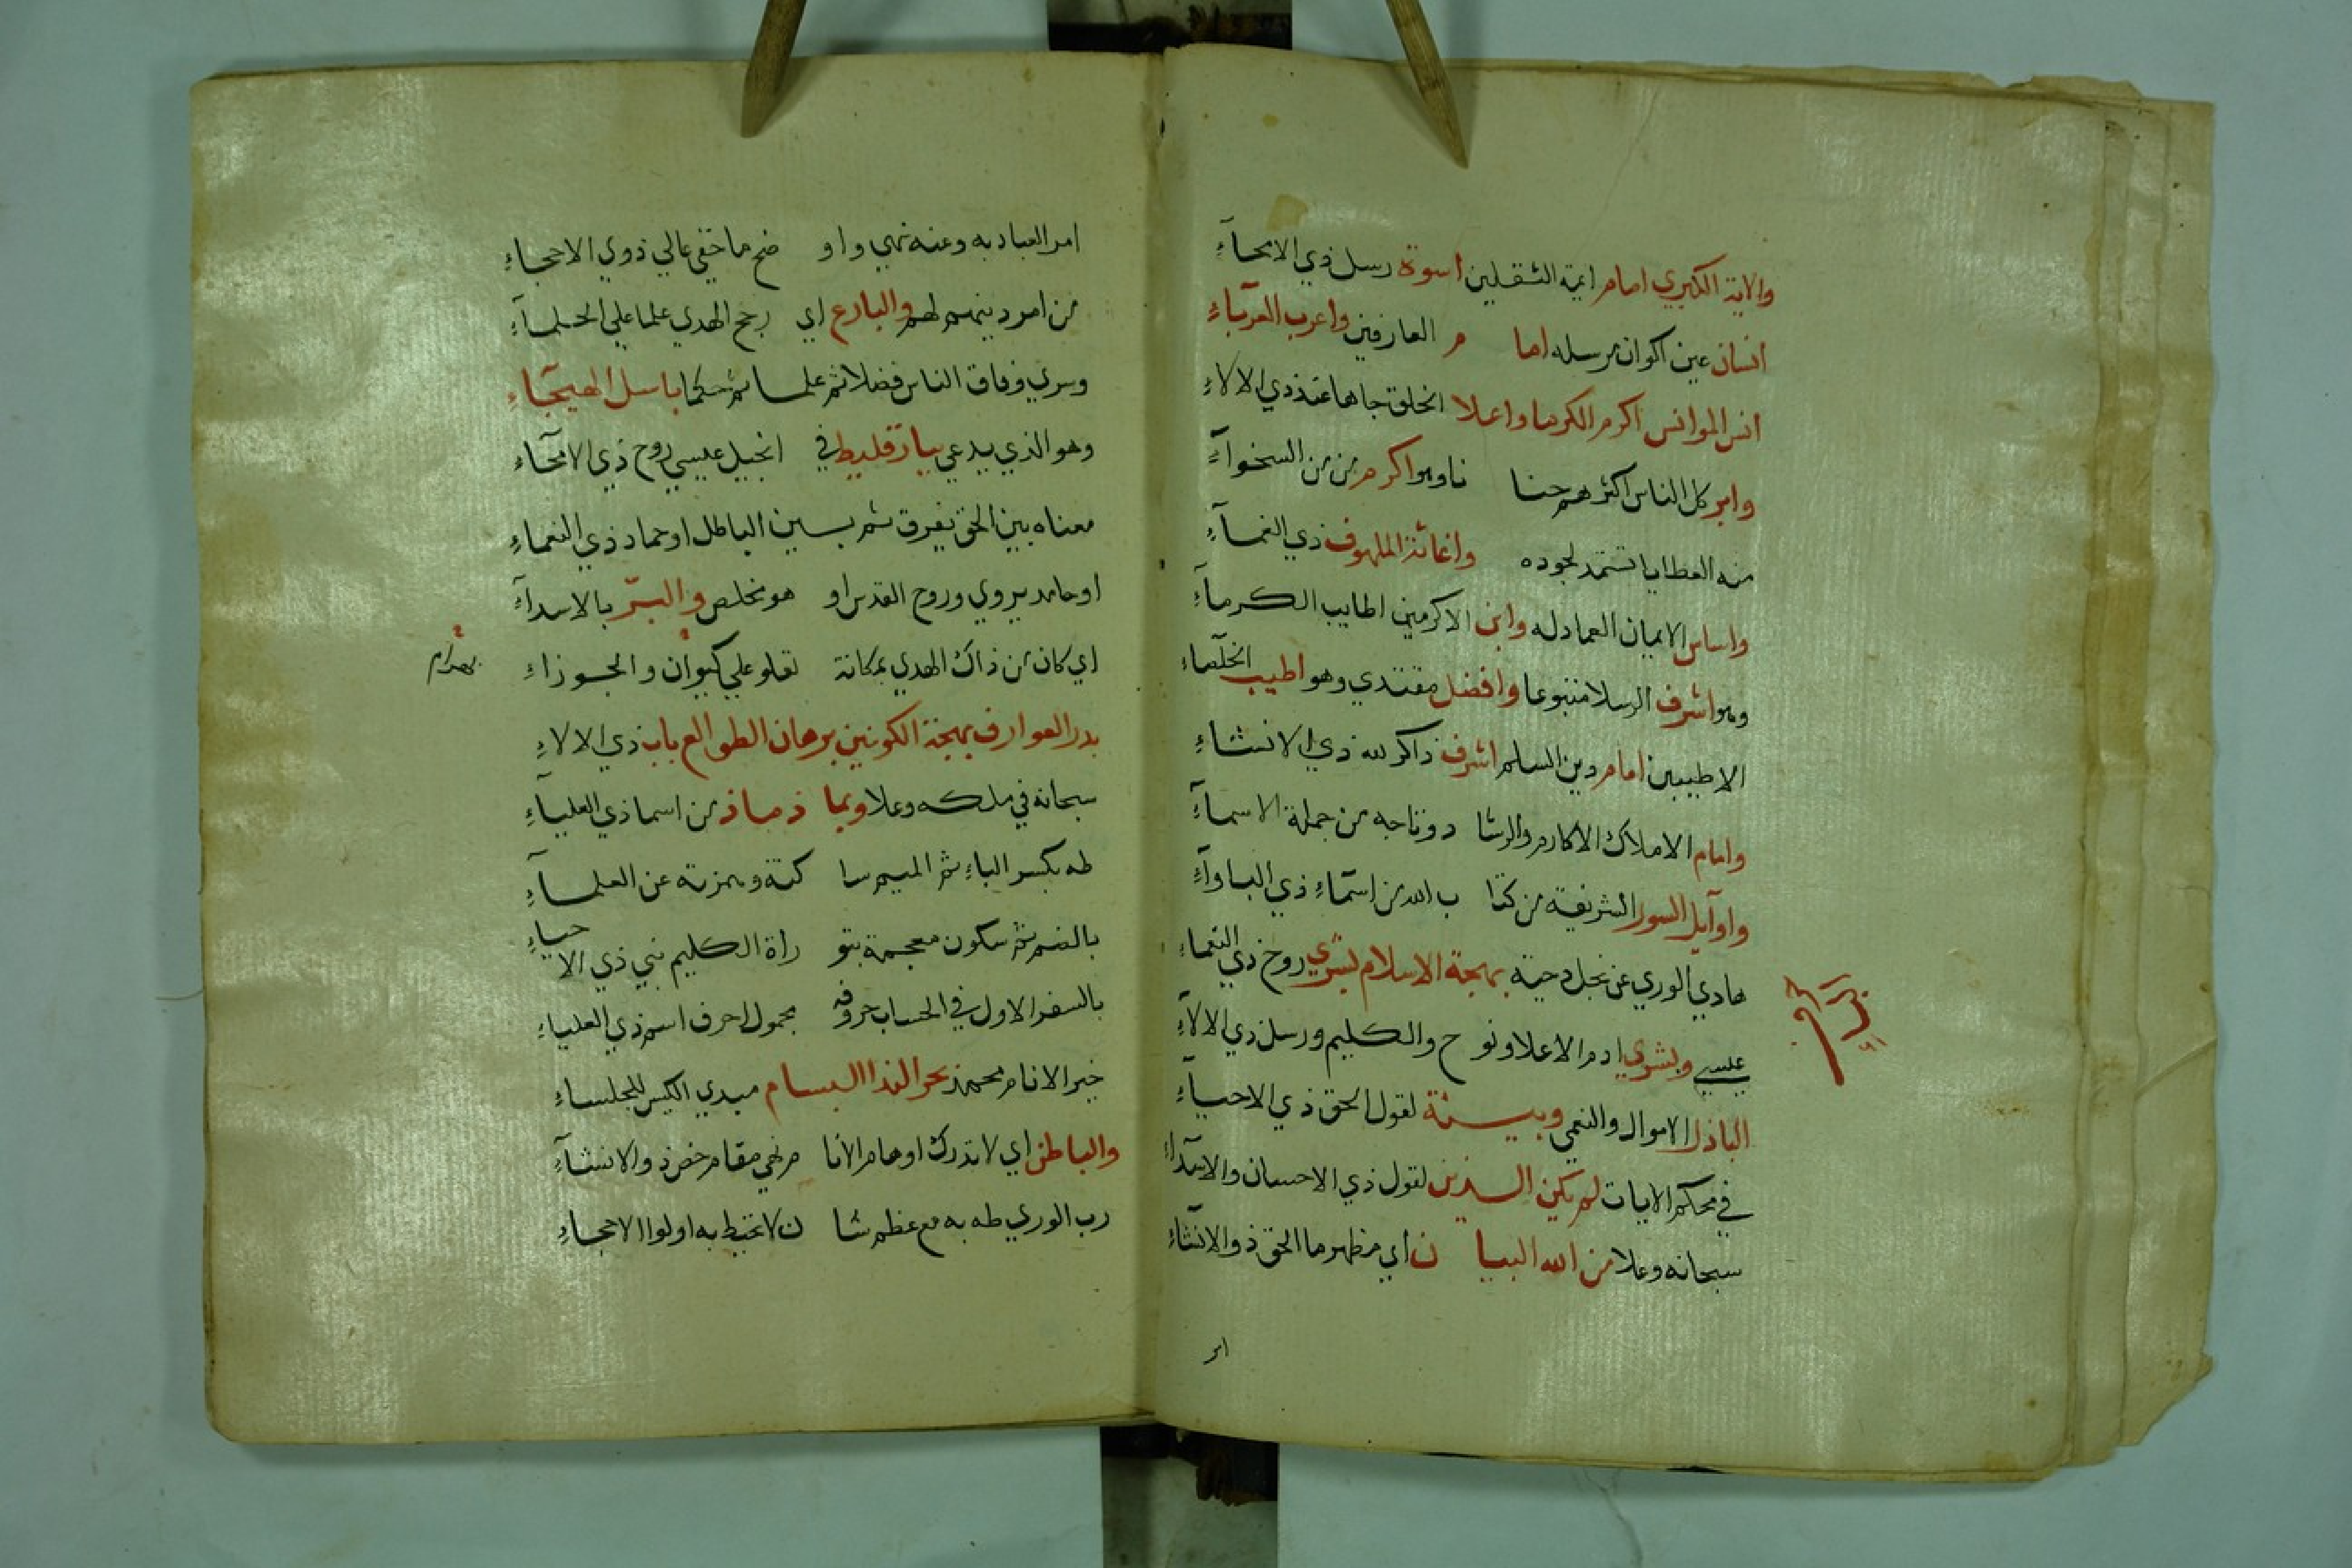 والاية الكبري امام ايمة الثقلين اسوة رسل ذي الامحآء
انسان عين اكوان مرسله اما م العارفين واعرب العرباء
انس الموانس اكرم الكرما واعلا الخلق جاها عند ذي الالاء
وابر كل الناس اكثرهم حنا نا وهو اكرم من من السخوآء
منه العطايا تستمد لجوده واغاثة الملهوف ذي الغمآء
واساس الايمان العماد له وابن الاكرمين اطايب الكرمآء
وهو اشرف الرسلا متبوعا وافضل مقتدي وهو اطيب الخلصاء
الاطيبين امام دين السلم اشرف ذاكر لله ذي الانشاء
وامام الاملاك الاكارم والرشا د وتاجه من جملة الاسمآء
واوآيل السور الشريفة من كتا ب الله من اسمآء ذي الباوآء
هادي الوري عن نجل دحية بهجة الاسلام بشري روح ذي النعماء
عيسي وبشري ادم الاعلا ونو ح والكليم ورسل ذي الالآء
الباذل الاموال والنعمي وبينة لقول الحق ذي الاحيآء
في محكم الايات لم يكن الذين لقول ذي الاحسان والاسدآء
سبحانه وعلا من الله البيا ن اي مظهر ما الحق ذو الانشاء
امر
امر العباد به وعنه نهي واو ضح ما خفي عالي ذوي الاحجاء
من امر دينهم لهم والبارع اي رجح الهدي علما علي الحلمآء
وسري وفاق الناس فضلا ثم علما ثم حكما باسل الهيجآء
وهو الذي يدعي ببارقليط في انجيل عيسي روح ذي الامحآء
معناه بين الحق يفرق ثم بين الباطل او حماد ذي النعماء
او حامد يروي وروح القدس او هو مخلص والبرّ بالاسدآء
اي كان من ذاك الهدي بمكانة تعلو علي كيوان والجوزاء
بهرام
بدر العوارف بهجة الكونين برهان الطوالع باب ذي الالاء
سبحانه في ملكه وعلا وبما ذ ماذ من اسما ذي العليآء
طه بكسر الباء ثم الميم سا كتة وهمزته عن العلمآء
بالضم ثم سكون معجمة بتو راة الكليم نبي ذي الاحياء
بالسفر الاول في الحساب حروفه مجمول احرف اسم ذي العلياء
خير الانام محمد بحر الندا البسام مبدي الكيس للجلساء
والباطن اي لا تدرك اوهام الانا م نهي مقام خص ذو الانشآء
رب الوري طه به مع عظم شا ن لا تحيط به اولوا الاحجاء